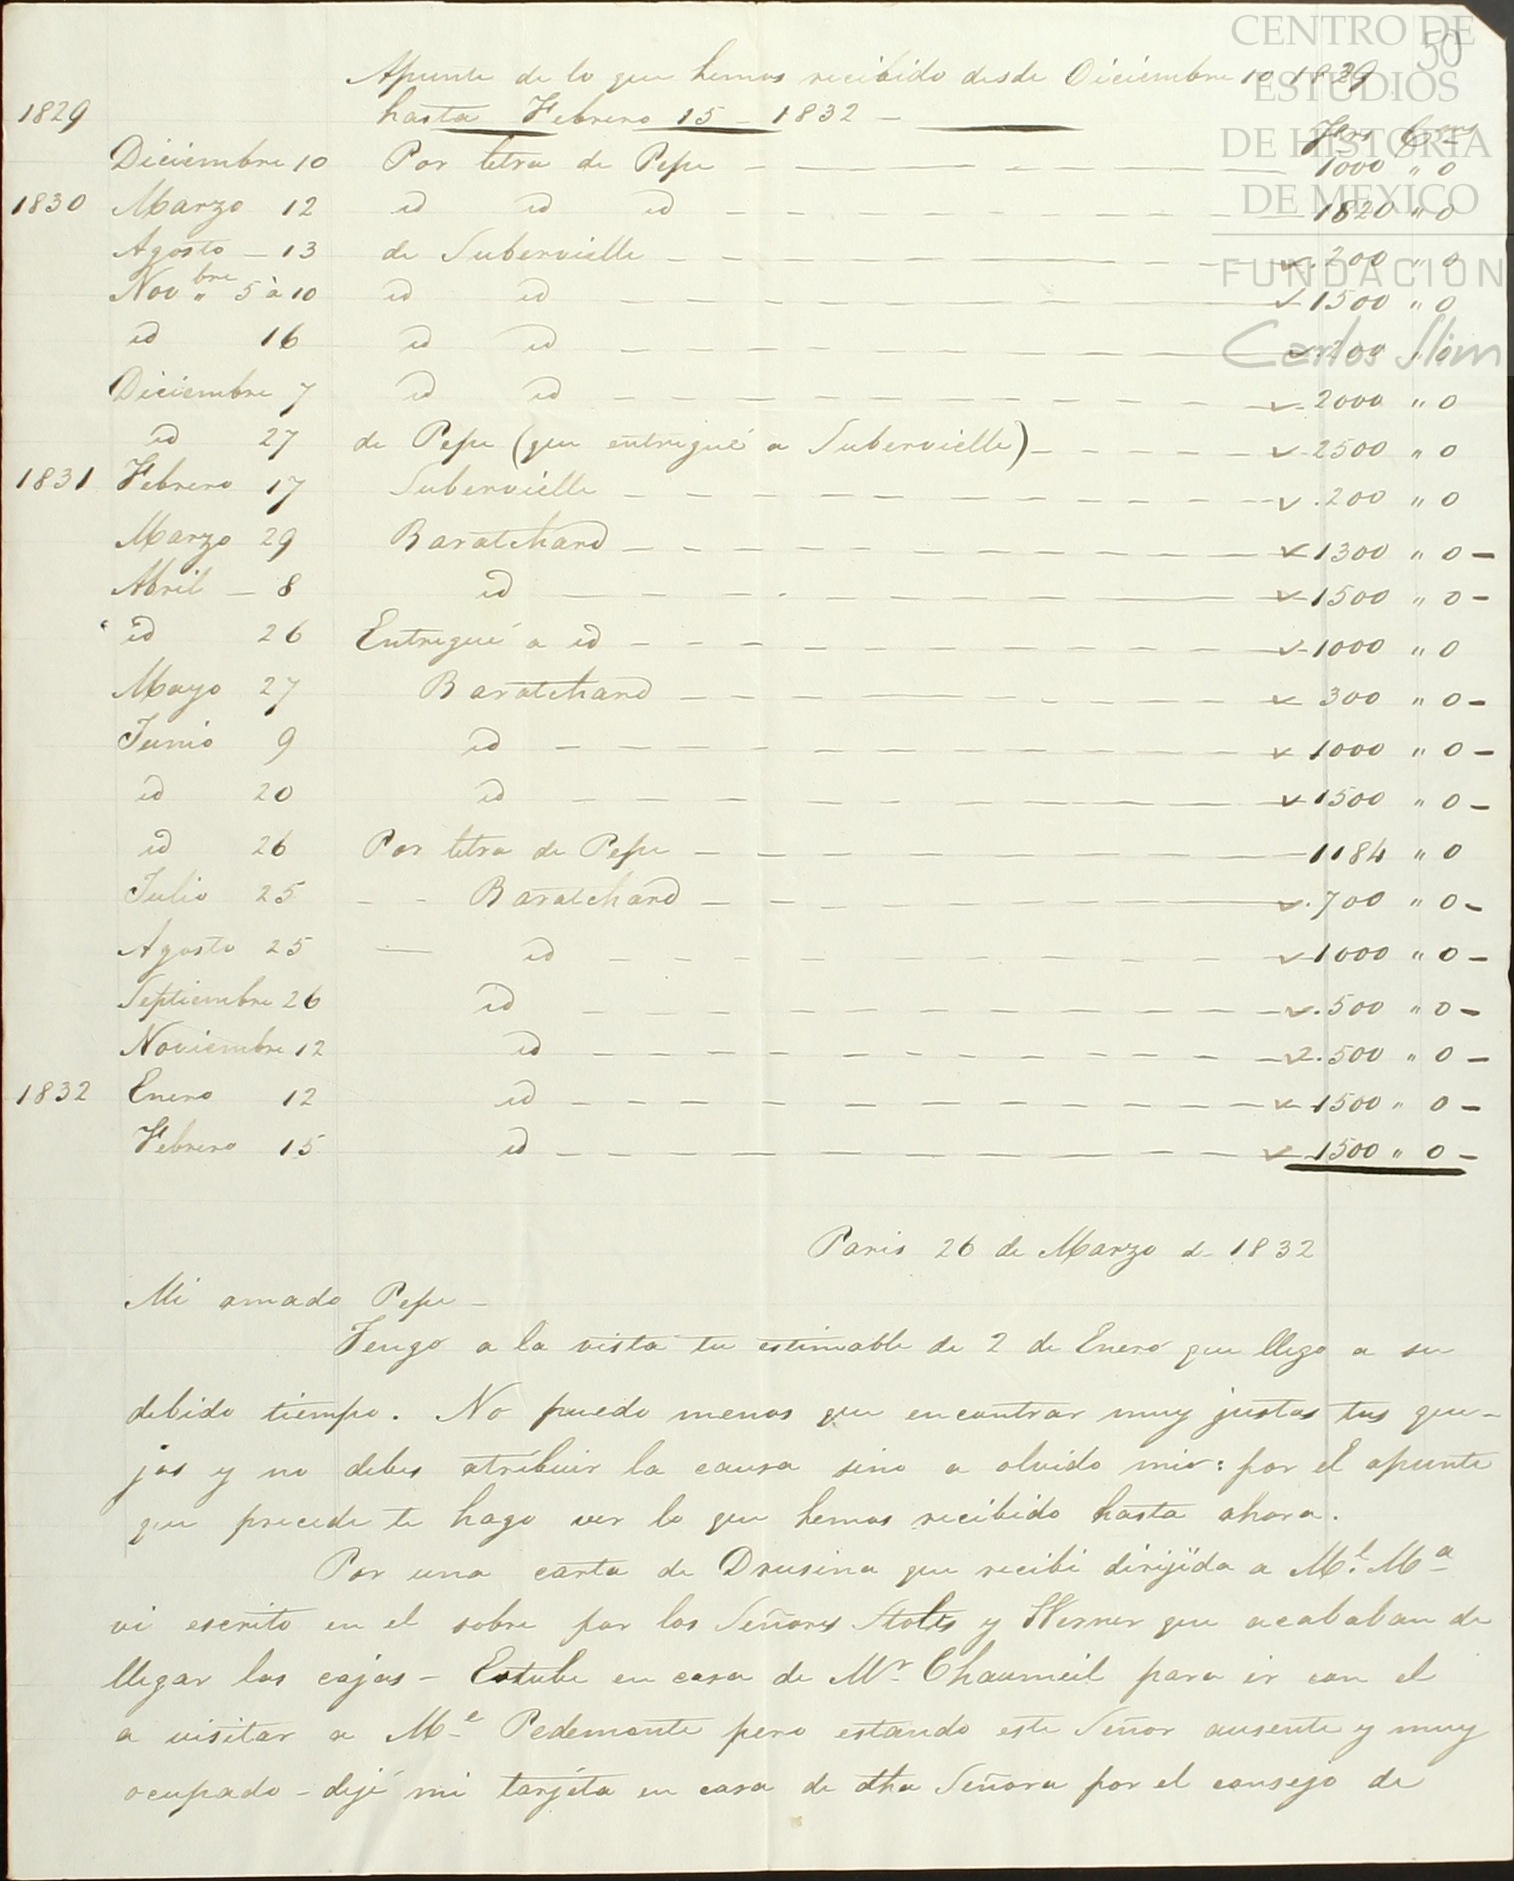 CENTRO DE
ESTUDIOS
DE HISTORIA
DE MEXICO
FUNDACION
Carlos Slim
50
Apunte de lo que hemos recibido desde Diciembre 10 1829
1829 hasta Febrero 15 - 1832 -
Diciembre 10 Por letra de Pepe 1000 " 0
1830 Marzo 12 id id id 1820 " 0
Agosto - 13 de Subervielle 200 " 0
Novbre " 5 à 10 id id 1500 " 0
id 16 id id 200 " 0
Diciembre 7 id id 2000 " 0
id 27 de Pepe (que entregué a Subervielle) 2500 " 0
1831 Febrero 17 Subervielle 200 " 0
Marzo 29 Baratchard 1300 " 0 -
Abril - 8 id 1500 " 0 -
id 26 Entregué a id 1000 " 0
Mayo 27 Baratchard 300 " 0 -
Junio 9 id 1000 " 0 -
id 20 id 1500 " 0 -
id 26 Por letra de Pepe 1184 " 0
Julio 25 - - Baratchard 700 " 0 -
Agosto 25 — id 1000 " 0 -
Septiembre 26 id 500 " 0 -
Noviembre 12 id 500 " 0 -
1832 Enero 12 id 1500 " 0 -
Febrero 15 id 1500 " 0 -
Paris 26 de Marzo de 1832
Mi amado Pepe -
Tengo a la vista tu estimable de 2 de Enero que llego a su
debido tiempo. No puedo menos que encontrar muy justas tus que-
jas y no debes atribuir la causa sino a olvido mio: por el apunte
que precede te hago ver lo que hemos recibido hasta ahora.
Por una carta de Drusina que recibi dirijida a Ml. Ma
vi escrito en el sobre por los Señores Stolts y Herner que acababan de
llegar las cajas - Estube en casa de Mr Chaumeil para ir con el
a visitar a Me Pedemonte pero estando este Señor ausente y muy
ocupado - dejé mi tarjéta en casa de dha Señora por el consejo de